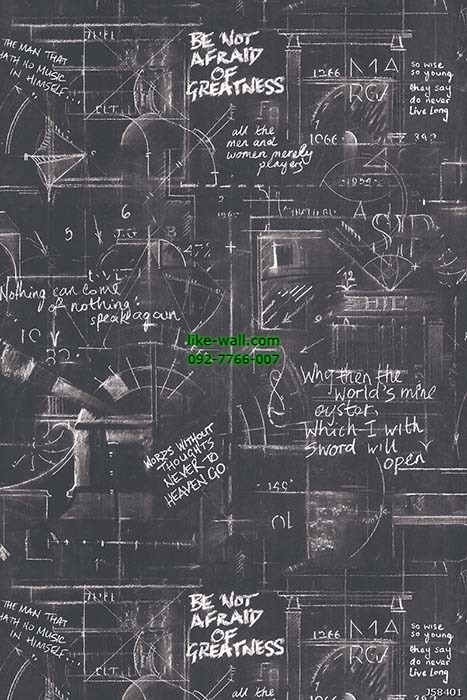 BE NOT
AFRAID
OF
GREATNESS
THE MAN THAT
HATH NO MUSIC
IN HIMSELF...
1266
MA
RCV
so wise
so young
they say
do never
live long
ELT
all the
men and
women merely
players
1066
392
1954
2
196
A
6
5
SID
47%
12
Nothing can come
of nothing:
speak again
10
32
like-wall.com
092-7766-007
Why then the
world's mine
oyster,
Which I with
sword will
open
WORDS WITHOUT
THOUGHTS
NEVER TO
HEAVEN GO
BE NOT
AFRAID
OF
GREATNESS
THE MAN THAT
HATH NO MUSIC
IN HIMSELF...
1266
MA
RCV
so wise
so young
they say
do never
live long
all the
J58401